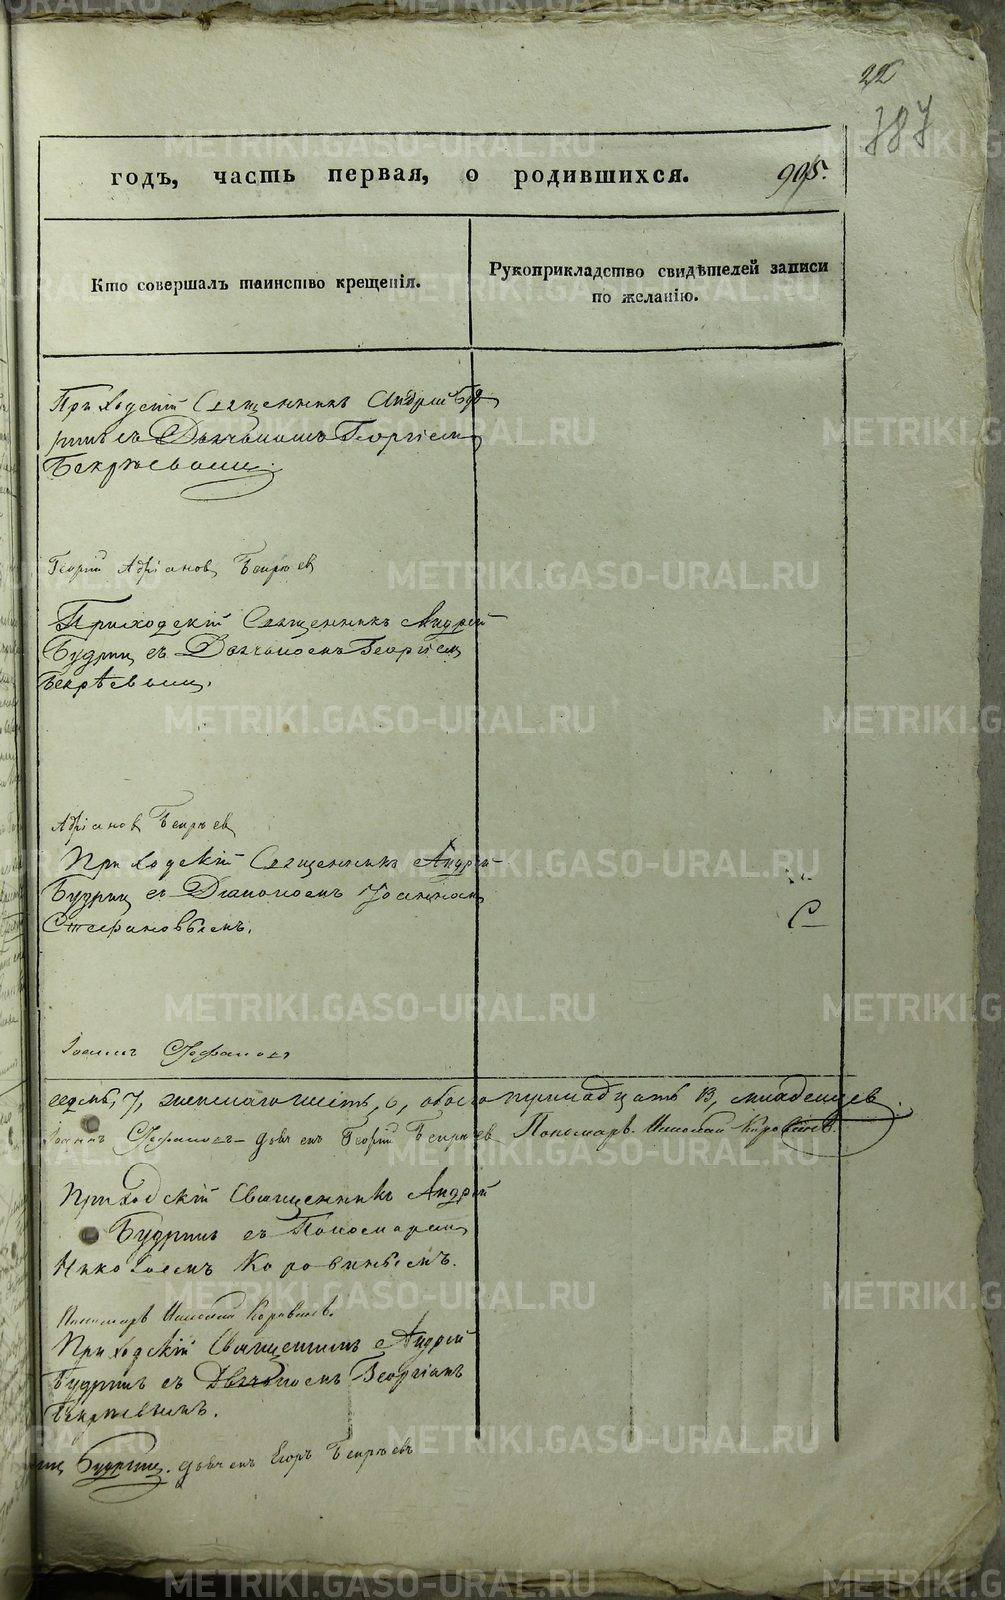 22
787
годъ, часть первая, о родившихся. 905.
Кто совершалъ таинство крещенія.
Рукоприкладство свидѣтелей записи по желанію.
Приходскій Священникъ Андрей Буд
ринъ съ Дьячькомъ Георгіем
Бекрѣевымъ.
Георгій Адріановъ Бекрѣев
Приходскій Священникъ Андрей
Будрин съ Дьячькомъ Георгіем
Бекрѣевымъ.
Адріановъ Бекрѣев
Приходскій Священникъ Андрей
Будрин съ Діакономъ Іоанном
Стефановымъ.
С
Іоаннъ Стефановъ
седмь, 7, женскаго шесть, 6, обоего тринадцать 13, младенцев.
Іоаннъ Стефановъ дьячекъ Георгій Бекрѣев Пономарь Николай Коровинъ.
Приходскій Священникъ Андрей
Будринъ съ Пономарем
Николаемъ Коровинымъ.
Пономарь Николай Коровинъ.
Приходскій Священникъ Андрей
Будринъ съ Дьячькомъ Георгіемъ
Бекрѣевымъ.
Будрин. дьячекъ Егоръ Бекрѣевъ
METRIKI.GASO-URAL.RU